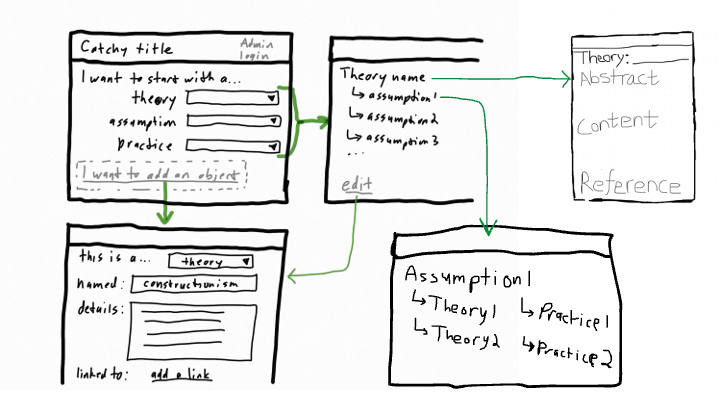 Catchy title
Admin
login
I want to start with a...
theory
assumption
practice
I want to add an object
Theory name
assumption1
assumption2
assumption3
...
edit
Theory:
Abstract
Content
Reference
this is a... theory
named: constructionism
details:
linked to: add a link
Assumption1
Theory1
Theory2
Practice1
Practice2